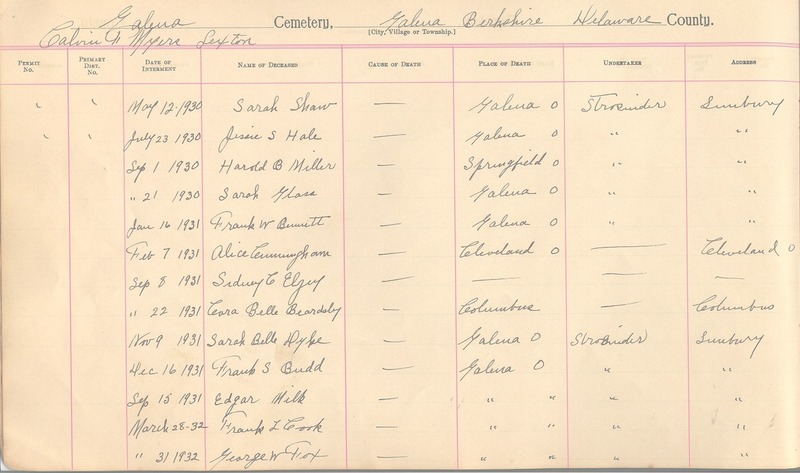 Galena Cemetery, Galena Berkshire Delaware County.
[City, Village or Township.]
Calvin F Myers Sexton
PERMIT No. PRIMARY DIST. No. DATE OF INTERMENT NAME OF DECEASED CAUSE OF DEATH PLACE OF DEATH UNDERTAKER ADDRESS
" " May 12-1930 Sarah Shaw — Galena O Strosnider Sunbury
" " July 23 1930 Jessie S Hale — Galena O " "
Sep 1 1930 Harold B Miller — Springfield O " "
" 21 1930 Sarah Glass — Galena O " "
Jan 16 1931 Frank W Bennett — Galena O " "
Feb 7 1931 Alice Cunningham — Cleveland O — Cleveland O
Sep 8 1931 Sidney C — — — —
" 22 1931 Cora Belle Beardsley — Columbus — Columbus
Nov 9 1931 Sarah Belle Dyke — Galena O Strosnider Sunbury
Dec 16 1931 Frank S Budd — Galena O " "
Sep 15 1931 Edgar Milk — " " " "
March 28-32 Frank L Cook — " " " "
" 31 1932 George W Fox — " " " "